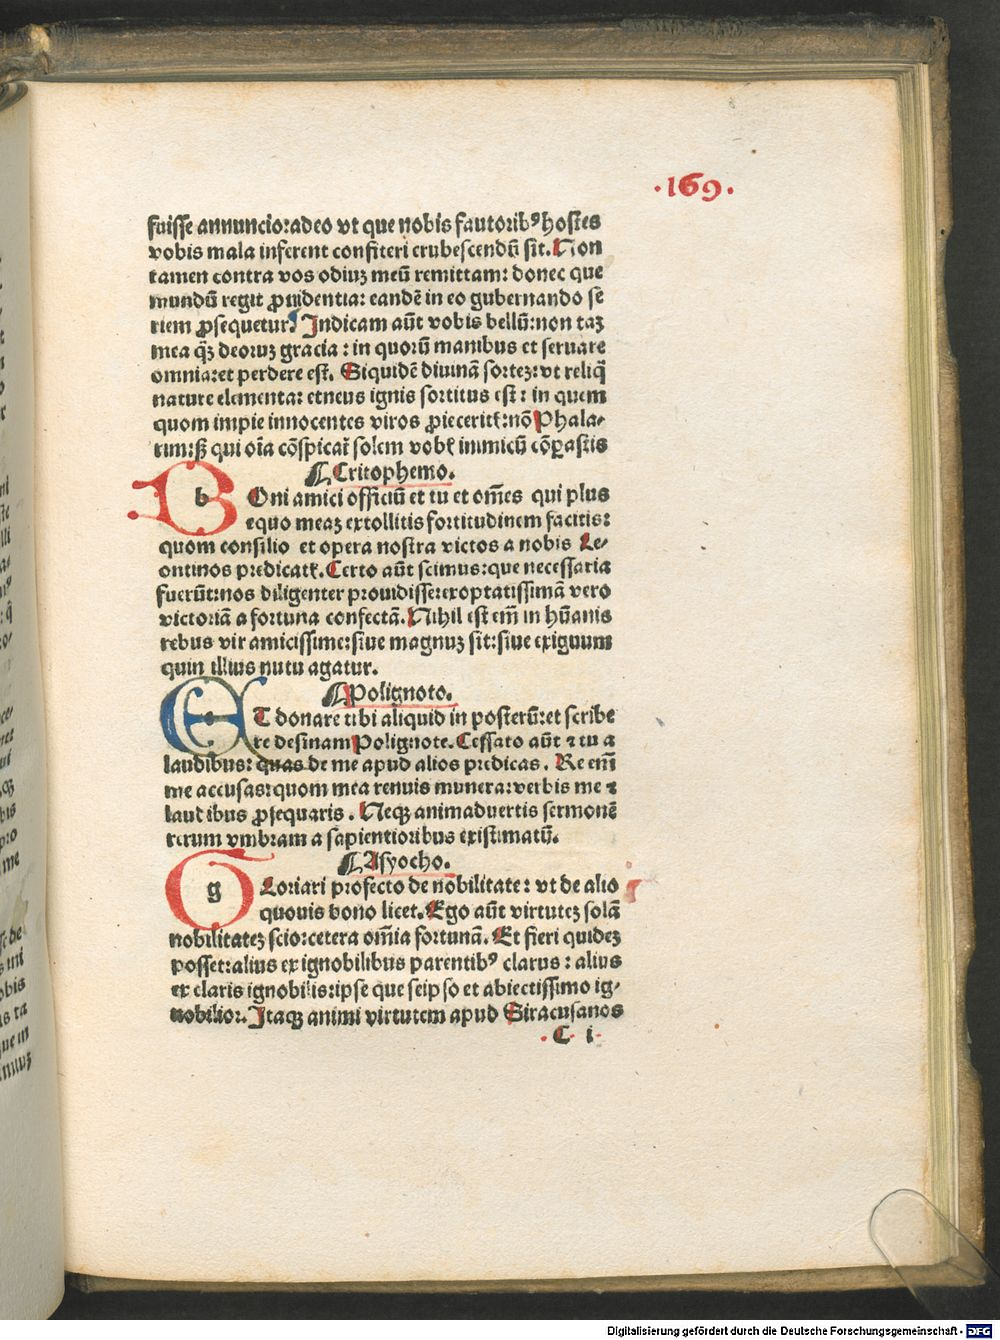 .169.
fuisse annuncio:adeo vt que nobis fautoribꝰ hostes
vobis mala inferent confiteri erubescendū sit. Non
tamen contra vos odiuꝫ meū remittam: donec que
mundū regit ꝓuidentia: eandē in eo gubernando se
riem ꝓsequetur. Indicam aūt vobis bellū:non taꝫ
mea qꝫ deoruꝫ gracia: in quorū manibus et seruare
omnia:et perdere est. Siquidē diuinā sorteꝫ: vt reliq̄
nature elementa: etneus ignis sortitus est: in quem
quom impie innocentes viros ꝓiecerit:nō Phala-
rim:sꝫ qui oīa cōspicat solem vobꝭ inimicū cōparastis
Critophemo.
b Oni amici officiū et tu et om̄es qui plus
equo meaꝫ extollitis fortitudinem facitis:
quom consilio et opera nostra victos a nobis Le-
ontinos predicatꝭ. Certo aūt scimus:que necessaria
fuerūt:nos diligenter prouidisse:exoptatissimā vero
victoriā a fortuna confectā. Nihil est em̄ in hūanis
rebus vir amicissime:siue magnuꝫ sit:siue exiguum
quin illius nutu agatur.
Polignoto.
ET donare tibi aliquid in posterū:et scribe
re desinam Polignote. Cessato aūt ⁊ tu a
laudibus: quas de me apud alios predicas. Re em̄
me accusas:quom mea renuis munera:verbis me ⁊
laudibus ꝓsequaris. Neqꝫ animaduertis sermonē
rerum vmbram a sapientioribus existimatū.
Asyocho.
g Loriari profecto de nobilitate: vt de alio
quouis bono licet. Ego aūt virtuteꝫ solā
nobilitateꝫ scio:cetera om̄ia fortunā. Et fieri quideꝫ
posset:alius ex ignobilibus parentibꝰ clarus: alius
ex claris ignobilis:ipse que seipso et abiectissimo ig-
nobilior. Itaqꝫ animi virtutem apud Siracusanos
C i
Digitalisierung gefördert durch die Deutsche Forschungsgemeinschaft - DFG